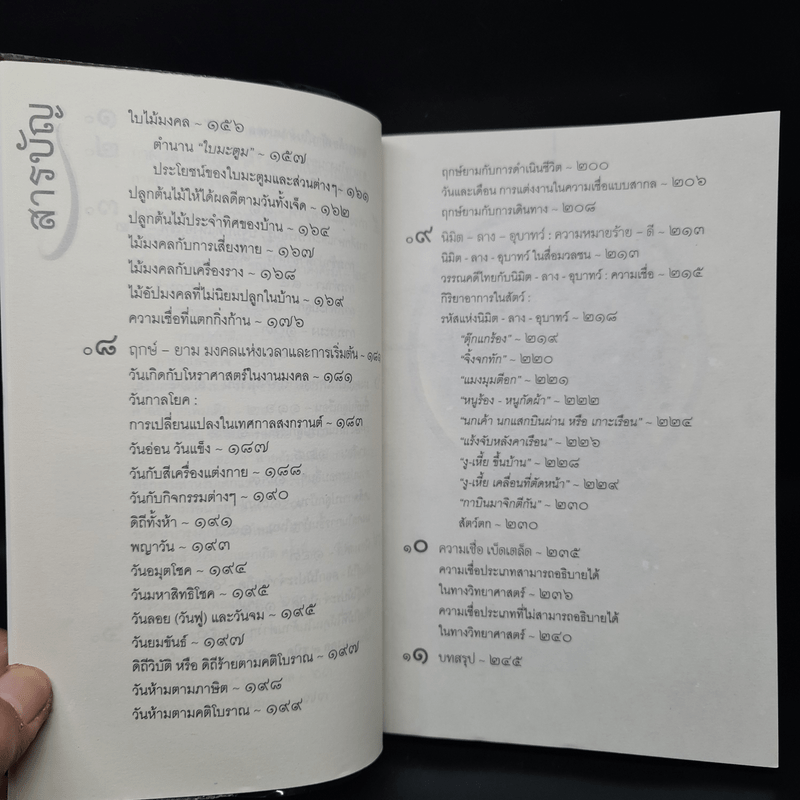 สารบัญ
ใบไม้มงคล ~ ๑๕๖
ตำนาน "ใบมะตูม" ~ ๑๕๗
ประโยชน์ของใบมะตูมและส่วนต่างๆ~ ๑๖๑
ปลูกต้นไม้ให้ได้ผลดีตามวันทั้งเจ็ด ~ ๑๖๒
ปลูกต้นไม้ประจำทิศของบ้าน ~ ๑๖๔
ไม้มงคลกับการเสี่ยงทาย ~ ๑๖๗
ไม้มงคลกับเครื่องราง ~ ๑๖๘
ไม้อัปมงคลที่ไม่นิยมปลูกในบ้าน ~ ๑๖๙
ความเชื่อที่แตกกิ่งก้าน ~ ๑๗๖
๐๘ ฤกษ์ – ยาม มงคลแห่งเวลาและการเริ่มต้น ~
วันเกิดกับโหราศาสตร์ในงานมงคล ~ ๑๘๑
วันกาลโยค :
การเปลี่ยนแปลงในเทศกาลสงกรานต์ ~ ๑๘๓
วันอ่อน วันแข็ง ~ ๑๘๗
วันกับสีเครื่องแต่งกาย ~ ๑๘๘
วันกับกิจกรรมต่างๆ ~ ๑๙๐
ดิถีทั้งห้า ~ ๑๙๑
พญาวัน ~ ๑๙๓
วันอมุตโชค ~ ๑๙๔
วันมหาสิทธิโชค ~ ๑๙๕
วันลอย (วันฟู) และวันจม ~ ๑๙๕
วันยมขันธ์ ~ ๑๙๗
ดิถีวิบัติ หรือ ดิถีร้ายตามคติโบราณ ~ ๑๙๗
วันห้ามตามภาษิต ~ ๑๙๘
วันห้ามตามคติโบราณ ~ ๑๙๙
ฤกษ์ยามกับการดำเนินชีวิต ~ ๒๐๐
วันและเดือน การแต่งงานในความเชื่อแบบสากล ~ ๒๐๖
ฤกษ์ยามกับการเดินทาง ~ ๒๐๘
๐๙ นิมิต – ลาง – อุบาทว์ : ความหมายร้าย – ดี ~ ๒๑๓
นิมิต - ลาง - อุบาทว์ ในสื่อมวลชน ~ ๒๑๓
วรรณคดีไทยกับนิมิต - ลาง - อุบาทว์ : ความเชื่อ ~ ๒๑๕
กิริยาอาการในสัตว์ :
รหัสแห่งนิมิต - ลาง - อุบาทว์ ~ ๒๑๘
"ตุ๊กแกร้อง" ~ ๒๑๙
"จิ้งจกทัก" ~ ๒๒๐
"แมงมุมตีอก" ~ ๒๒๑
"หนูร้อง - หนูกัดผ้า" ~ ๒๒๒
"นกเค้า นกแสกบินผ่าน หรือ เกาะเรือน" ~ ๒๒๔
"แร้งจับหลังคาเรือน" ~ ๒๒๖
"งู-เหี้ย ขึ้นบ้าน" ~ ๒๒๘
"งู-เหี้ย เคลื่อนที่ตัดหน้า" ~ ๒๒๙
"กาบินมาจิกตีกัน" ~ ๒๓๐
สัตว์ตก ~ ๒๓๐
๑๐ ความเชื่อ เบ็ดเตล็ด ~ ๒๓๕
ความเชื่อประเภทสามารถอธิบายได้
ในทางวิทยาศาสตร์ ~ ๒๓๖
ความเชื่อประเภทที่ไม่สามารถอธิบายได้
ในทางวิทยาศาสตร์ ~ ๒๔๐
๑๑ บทสรุป ~ ๒๔๕